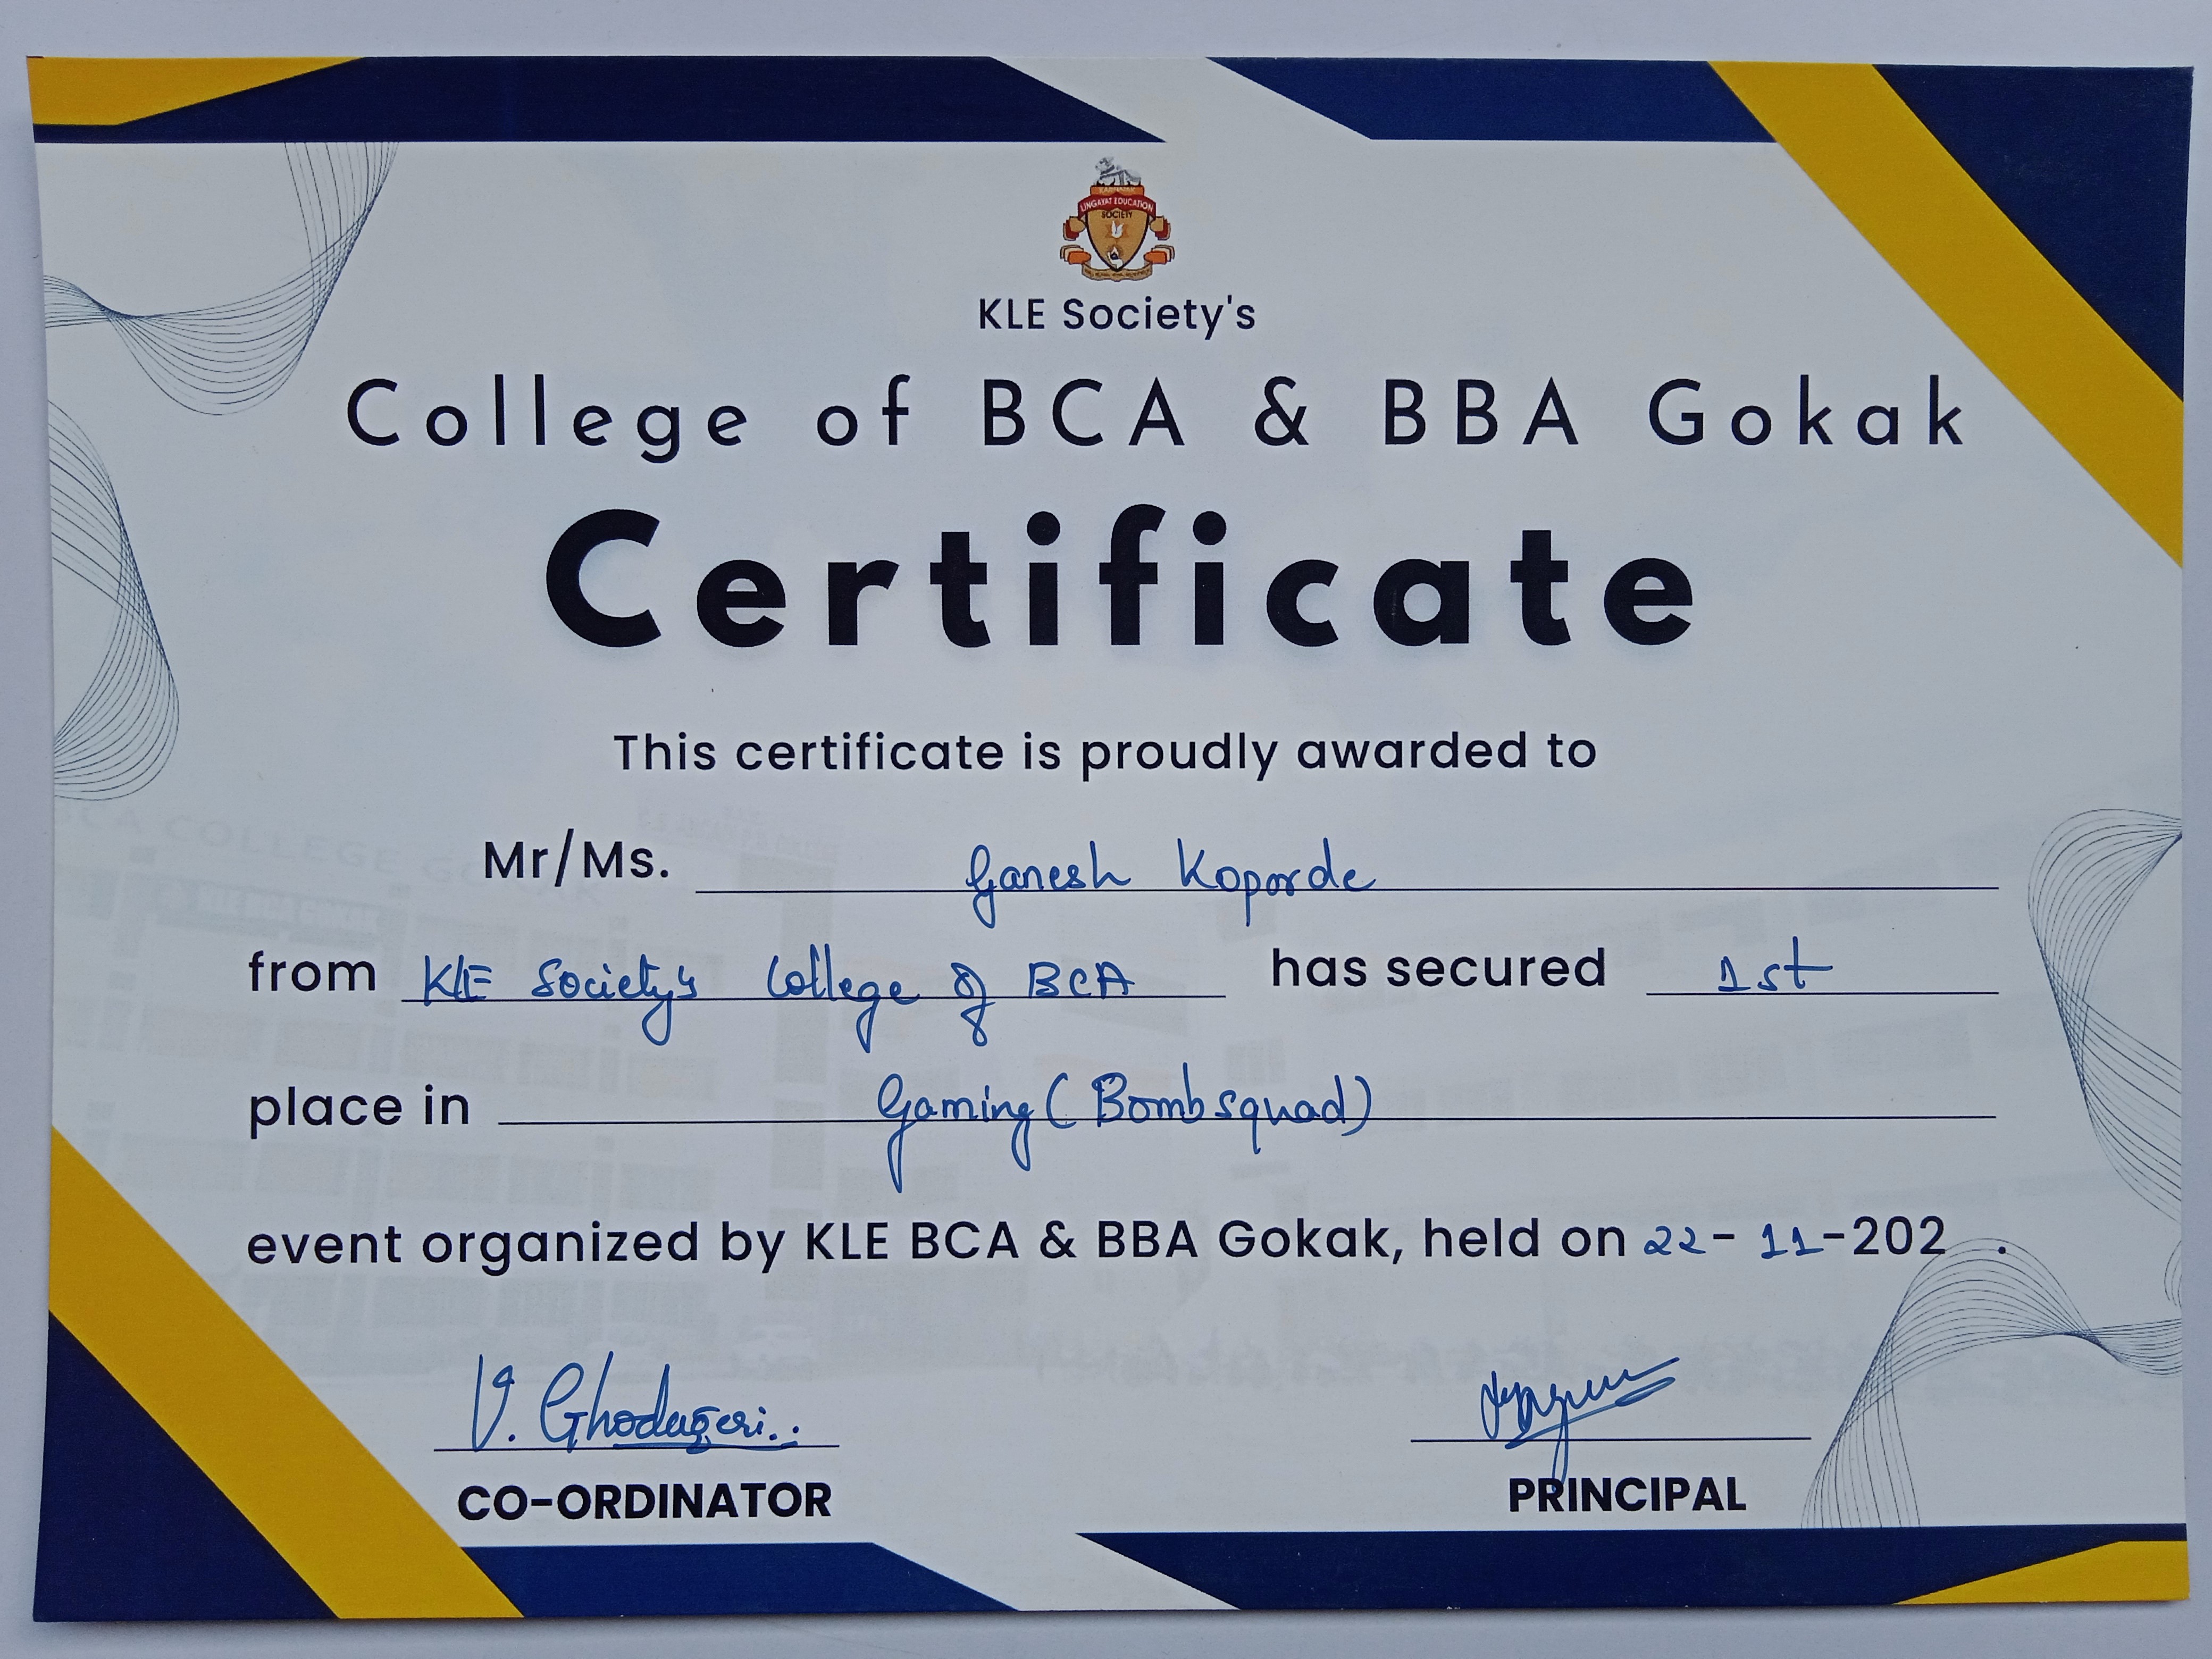 LINGAYAT EDUCATION
SOCIETY
KLE Society's
College of BCA & BBA Gokak
Certificate
This certificate is proudly awarded to
Mr/Ms. Ganesh Koparde
from KLE Society's College of BCA has secured 1st
place in Gaming (Bombsquad)
event organized by KLE BCA & BBA Gokak, held on 22-11-202 .
V. Ghodageri..
CO-ORDINATOR
PRINCIPAL